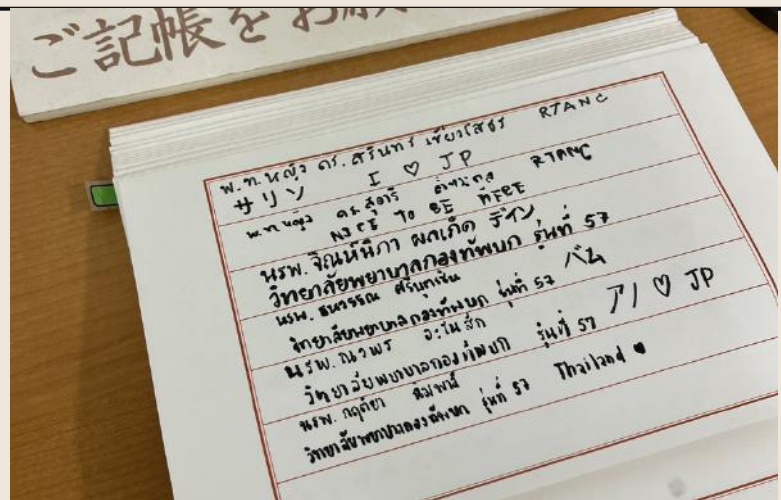 ご記帳をお願
พ.ท.หญิง ดร.ศรินทร RTANC
サリン I ♡ JP
พ.ท.หญิง ดร.สุอารี RTANC
NICE TO BE HERE
นรพ. จิณห์นิภา ผลเกิด デイン
วิทยาลัยพยาบาลกองทัพบก รุ่นที่ 57
นรพ. ธนวรรณ ศรีบุญเริ่ม バム
วิทยาลัยพยาบาลกองทัพบก รุ่นที่ 57
นรพ. ณวพร アノ ♡ JP
วิทยาลัยพยาบาลกองทัพบก รุ่นที่ 57
นรพ. กฤติยา Thailand ♥
วิทยาลัยพยาบาลกองทัพบก รุ่นที่ 57